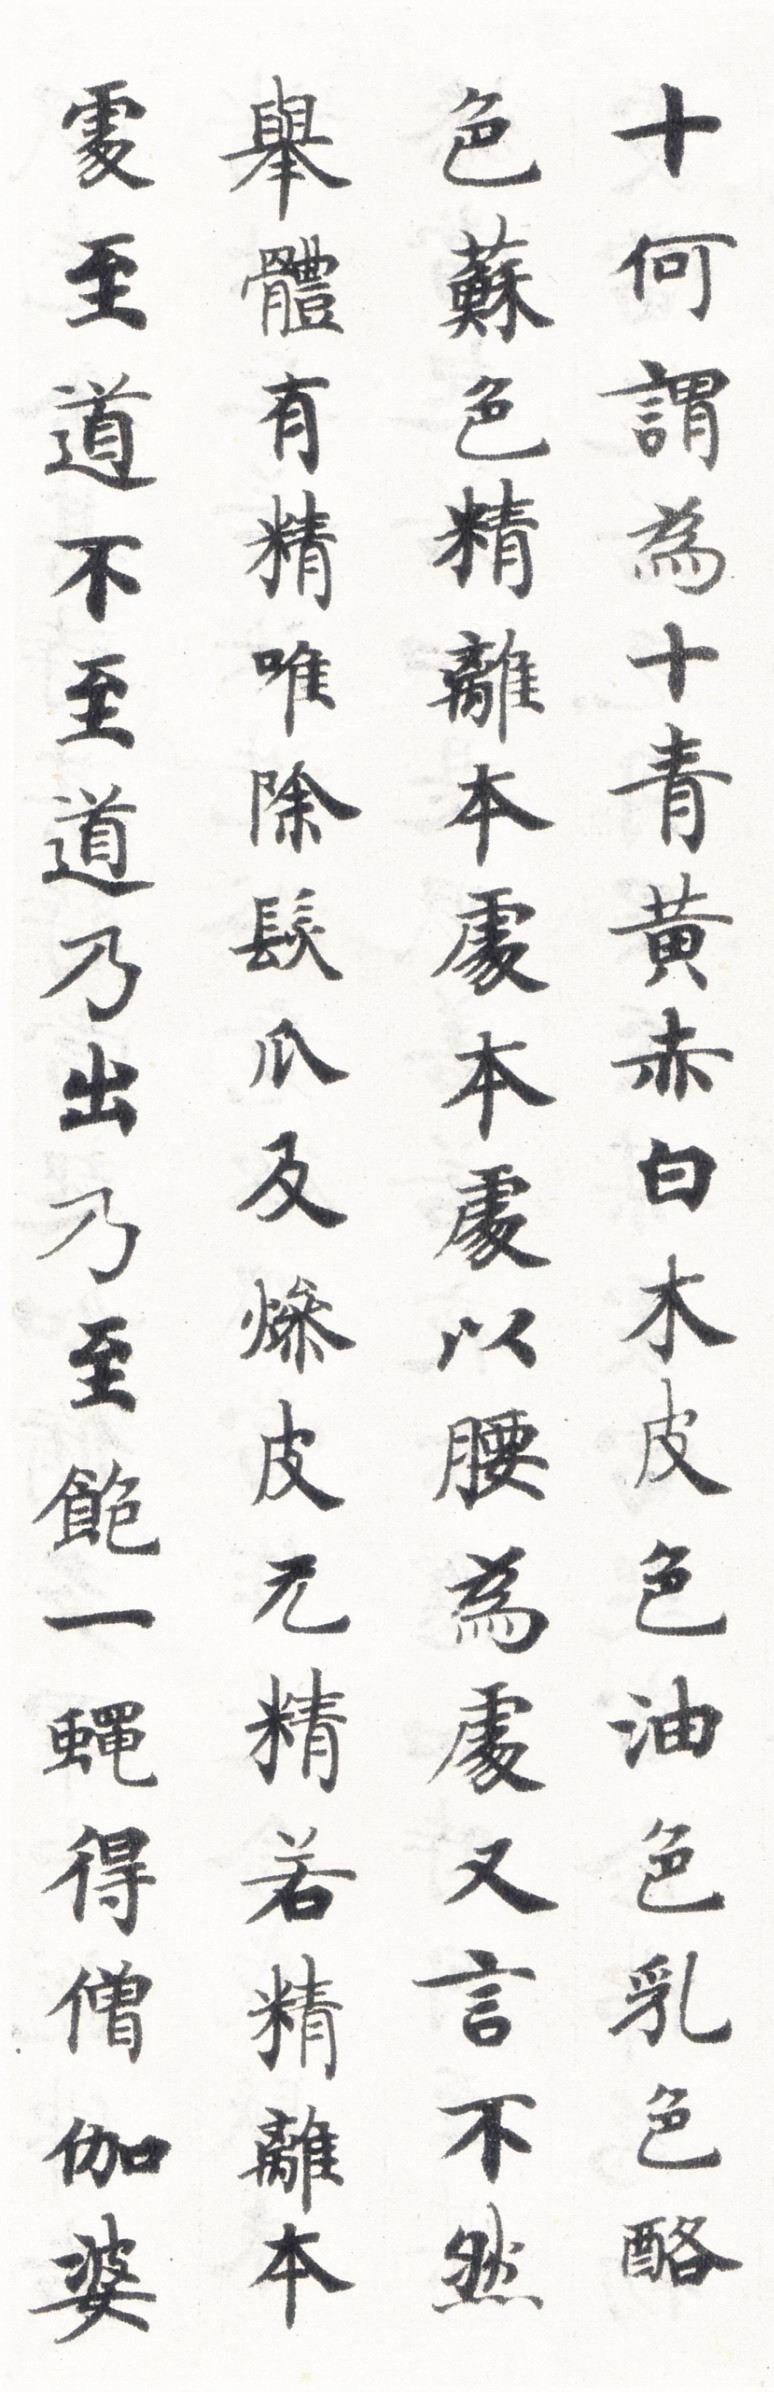 十何謂為十青黃赤白木皮色油色乳色酪
色蘇色精離本處本處以腰為處又言不然
舉體有精唯除髮爪及燥皮无精若精離本
處至道不至道乃出乃至飽一蠅得僧伽婆